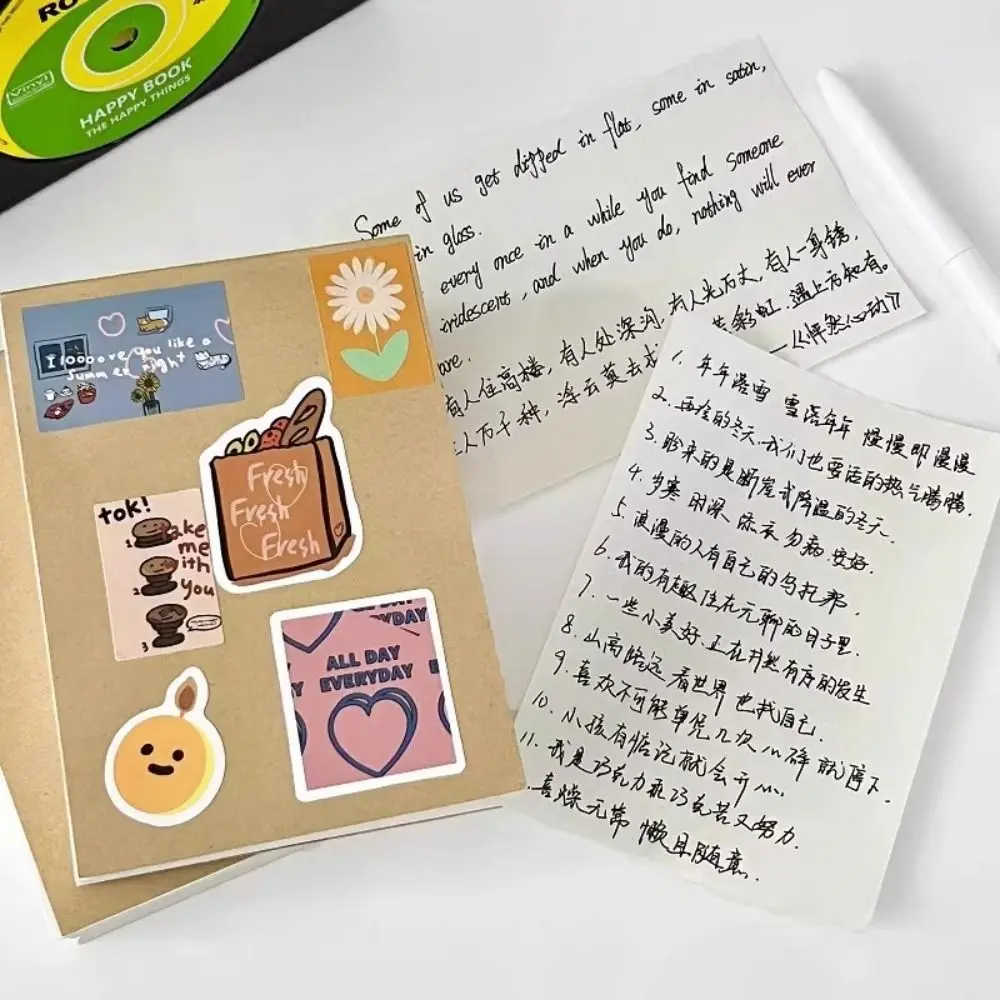 RO
VINYL
HAPPY BOOK
THE HAPPY THINGS
Some of us get dipped in flat, some in satin,
in gloss.
every once in a while you find someone
iridescent, and when you do, nothing will ever
are.
有人住高楼，有人处深沟，有人光万丈，有人一身锈，
人万千种，浮云莫去求 若彩虹，遇上方知有。
—《怦然心动》
I loooove you like a
summer night
Fresh
Fresh
Fresh
tok!
ake
me
ith
you
1
2
3
ALL DAY
EVERYDAY
YDAY
1. 年年落雪 雪落年年 慢慢即漫漫
2. 再冷的冬天.我们也要活的热气腾腾.
3. 盼来的是断崖式降温的冬天.
4. 岁寒 时深 添衣 勿病 安好.
5. 浪漫的人有自己的乌托邦.
6. 我的有趣住在无聊的日子里.
7. 一些小美好.正在井然有序的发生
8. 山高路远 看世界 也找自己.
9. 喜欢不可能单凭几次心碎就停下.
10. 小孩有惦记就会开心.
11. 我是巧克力乖巧克苦又努力.
喜燥无常 懒且随意.